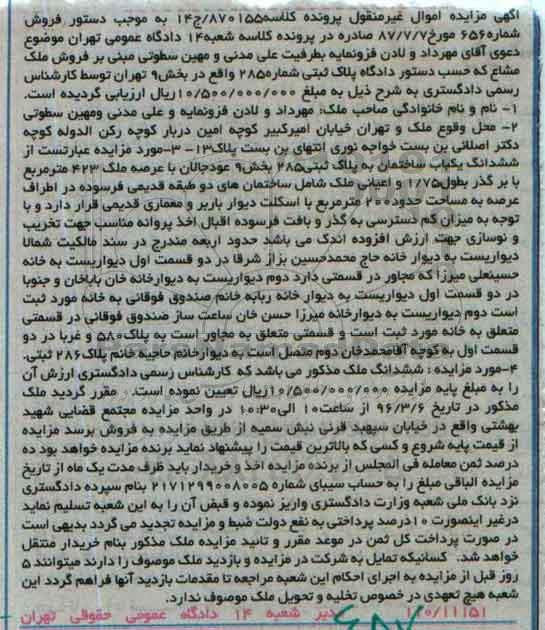 آگهی مزایده اموال غیرمنقول پرونده کلاسه۸۷۰۱۵۵/ج۱۴ به موجب دستور فروش
شماره۶۵۶ مورخ۸۷/۷/۷ صادره در پرونده کلاسه شعبه۱۴ دادگاه عمومی تهران موضوع
دعوی آقای مهرداد و لادن فزونمایه بطرفیت علی مدنی و مهین سطوتی مبنی بر فروش ملک
مشاع که حسب دستور دادگاه پلاک ثبتی شماره۲۸۵ واقع در بخش۹ تهران توسط کارشناس
رسمی دادگستری به شرح ذیل به مبلغ ۱۰/۵۰۰/۰۰۰/۰۰۰ریال ارزیابی گردیده است.
۱- نام و نام خانوادگی صاحب ملک: مهرداد و لادن فزونمایه و علی مدنی ومهین سطوتی
۲- محل وقوع ملک و تهران خیابان امیرکبیر کوچه امین دربار کوچه رکن الدوله کوچه
دکتر اصلانی بن بست خواجه نوری انتهای بن بست پلاک۱۳- ۳-مورد مزایده عبارتست از
ششدانگ یکباب ساختمان به پلاک ثبتی۲۸۵ بخش۹ عودجالان با عرصه ملک ۴۲۳ مترمربع
با بر گذر بطول۱/۷۵ و اعیانی ملک شامل ساختمان های دو طبقه قدیمی فرسوده در اطراف
عرصه به مساحت حدود۲۰۰ مترمربع با اسکلت دیوار باربر و معماری قدیمی قرار دارد و با
توجه به میزان کم دسترسی به گذر و بافت فرسوده اقبال اخذ پروانه مناسب جهت تخریب
و نوسازی جهت ارزش افزوده اندک می باشد حدود اربعه مندرج در سند مالکیت شمالا
دیواریست به دیوار خانه حاج محمدحسین بزاز شرقا در دو قسمت اول دیواریست به خانه
حسینعلی میرزا که مجاور در قسمتی دارد دوم دیواریست به دیوارخانه خان باباخان و جنوبا
در دو قسمت اول دیواریست به دیوار خانه ربابه خانم صندوق فوقانی به خانه مورد ثبت
است دوم دیواریست به دیوارخانه میرزا حسن خان ساعت ساز صندوق فوقانی در قسمتی
متعلق به خانه مورد ثبت است و قسمتی متعلق به مجاور است به پلاک۵۸۰ و غربا در دو
قسمت اول به کوچه آقامحمدخان دوم متصل است به دیوارخانم حاجیه خانم پلاک۲۸۶ ثبتی.
۴-مورد مزایده : ششدانگ ملک مذکور می باشد که کارشناس رسمی دادگستری ارزش آن
را به مبلغ پایه مزایده ۱۰/۵۰۰/۰۰۰/۰۰۰ریال تعیین نموده است. مقرر گردید ملک
مذکور در تاریخ ۹۶/۳/۶ از ساعت۱۰ الی۱۰:۳۰ در واحد مزایده مجتمع قضایی شهید
بهشتی واقع در خیابان سپهبد قرنی نبش سمیه از طریق مزایده به فروش برسد مزایده
از قیمت پایه شروع و کسی که بالاترین قیمت را پیشنهاد نماید برنده مزایده خواهد بود ده
درصد ثمن معامله فی المجلس از برنده مزایده اخذ و خریدار باید ظرف مدت یک ماه از تاریخ
مزایده الباقی مبلغ را به حساب سیبای شماره ۲۱۷۱۲۹۹۰۰۸۰۰۵ بنام سپرده دادگستری
نزد بانک ملی شعبه وزارت دادگستری واریز نموده و قبض آن را به این شعبه تسلیم نماید
درغیر اینصورت ۱۰درصد پرداختی به نفع دولت ضبط و مزایده تجدید می گردد بدیهی است
در صورت پرداخت کل ثمن در موعد مقرر و تائید مزایده ملک مذکور بنام خریدار منتقل
خواهد شد. کسانیکه تمایل به شرکت در مزایده و بازدید ملک موصوف را دارند میتوانند ۵
روز قبل از مزایده به اجرای احکام این شعبه مراجعه تا مقدمات بازدید آنها فراهم گردد این
شعبه هیچ تعهدی در خصوص تخلیه و تحویل ملک موصوف ندارد.
۱۱۰/۱۱۱۵۱ دبیر شعبه ۱۴ دادگاه عمومی حقوقی تهران